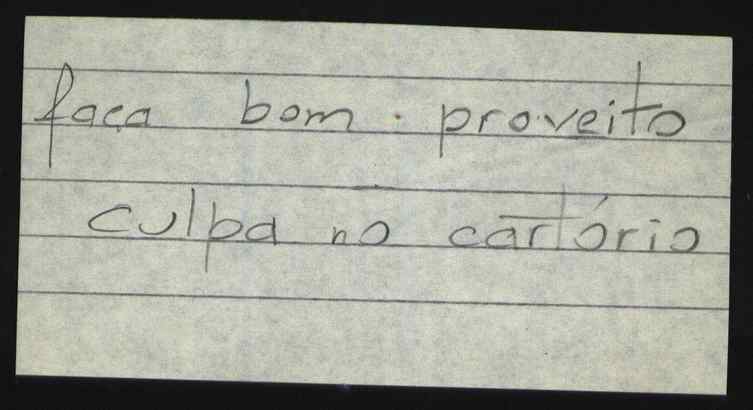 faça bom proveito
culpa no cartório